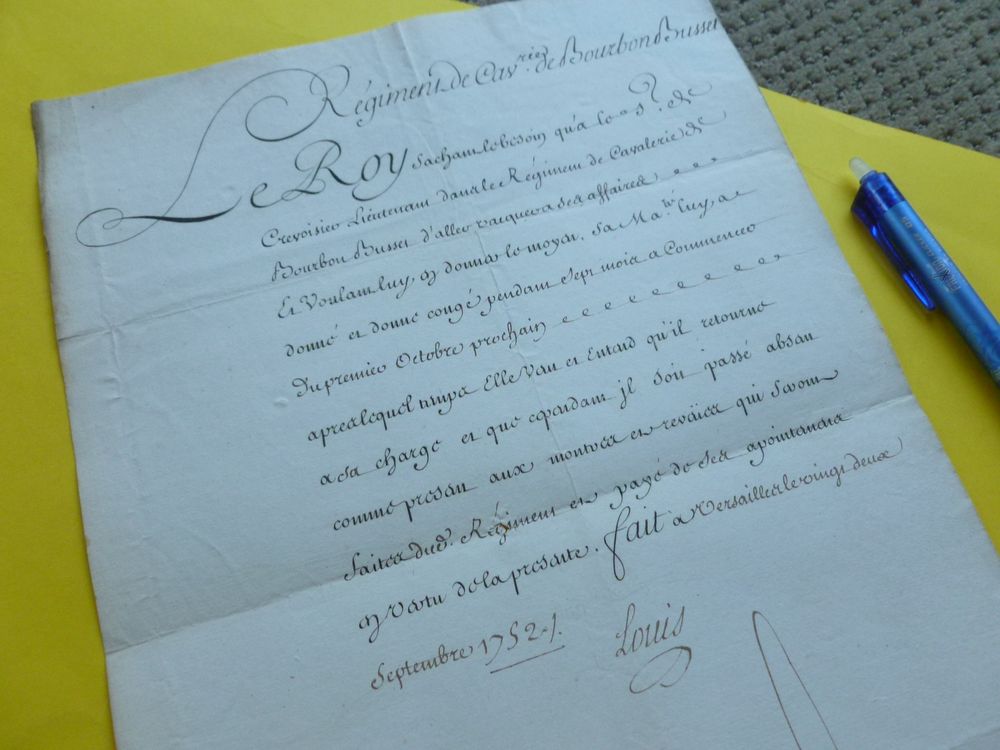 Régiment de Cav.rie de Bourbon Busset
Le Roy sachant le besoin qu'a le S.r de
Crevoisier Lieutenant dans le Régiment de Cavalerie de
Bourbon Busset d'aller vacquer a ses affaires
Et Voulant luy en donner le moyen. Sa Ma.té luy a
donné et donne congé pendant sept mois a Commencer
Du premier Octobre prochain
apres lequel temps Elle Veut et Entend qu'il retourne
a sa charge et que cependant jl soit passé absent
comme present aux montres et reveües qui seront
faites dud. Régiment et payé de ses apointemens
en vertu de la presente. fait a Versailles le vingt deux
Septembre 1752.
Louis